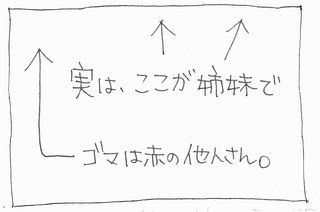 実は、ここが姉妹で
ゴマは赤の他人さん。